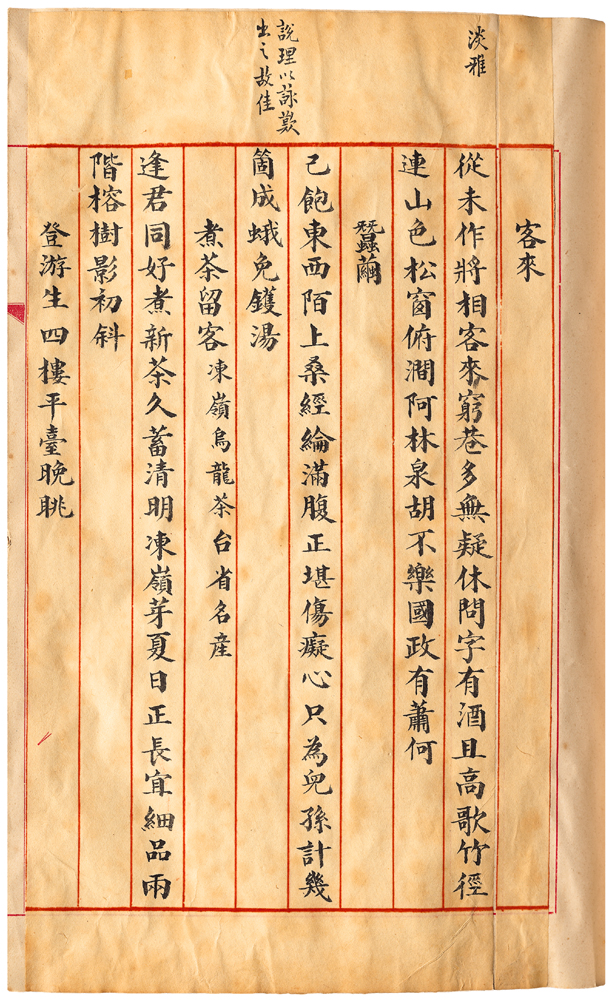 淡雅
說理以詠歎
出之故佳
客來
從未作將相客來窮巷多無疑休問字有酒且高歌竹徑
連山色松窗俯澗阿林泉胡不樂國政有蕭何
蠶繭
已飽東西陌上桑經綸滿腹正堪傷癡心只為兒孫計幾
箇成蛾免鑊湯
煮茶留客凍嶺烏龍茶台省名產
逢君同好煮新茶久蓄清明凍嶺芽夏日正長宜細品兩
階榕樹影初斜
登游生四樓平臺晚眺